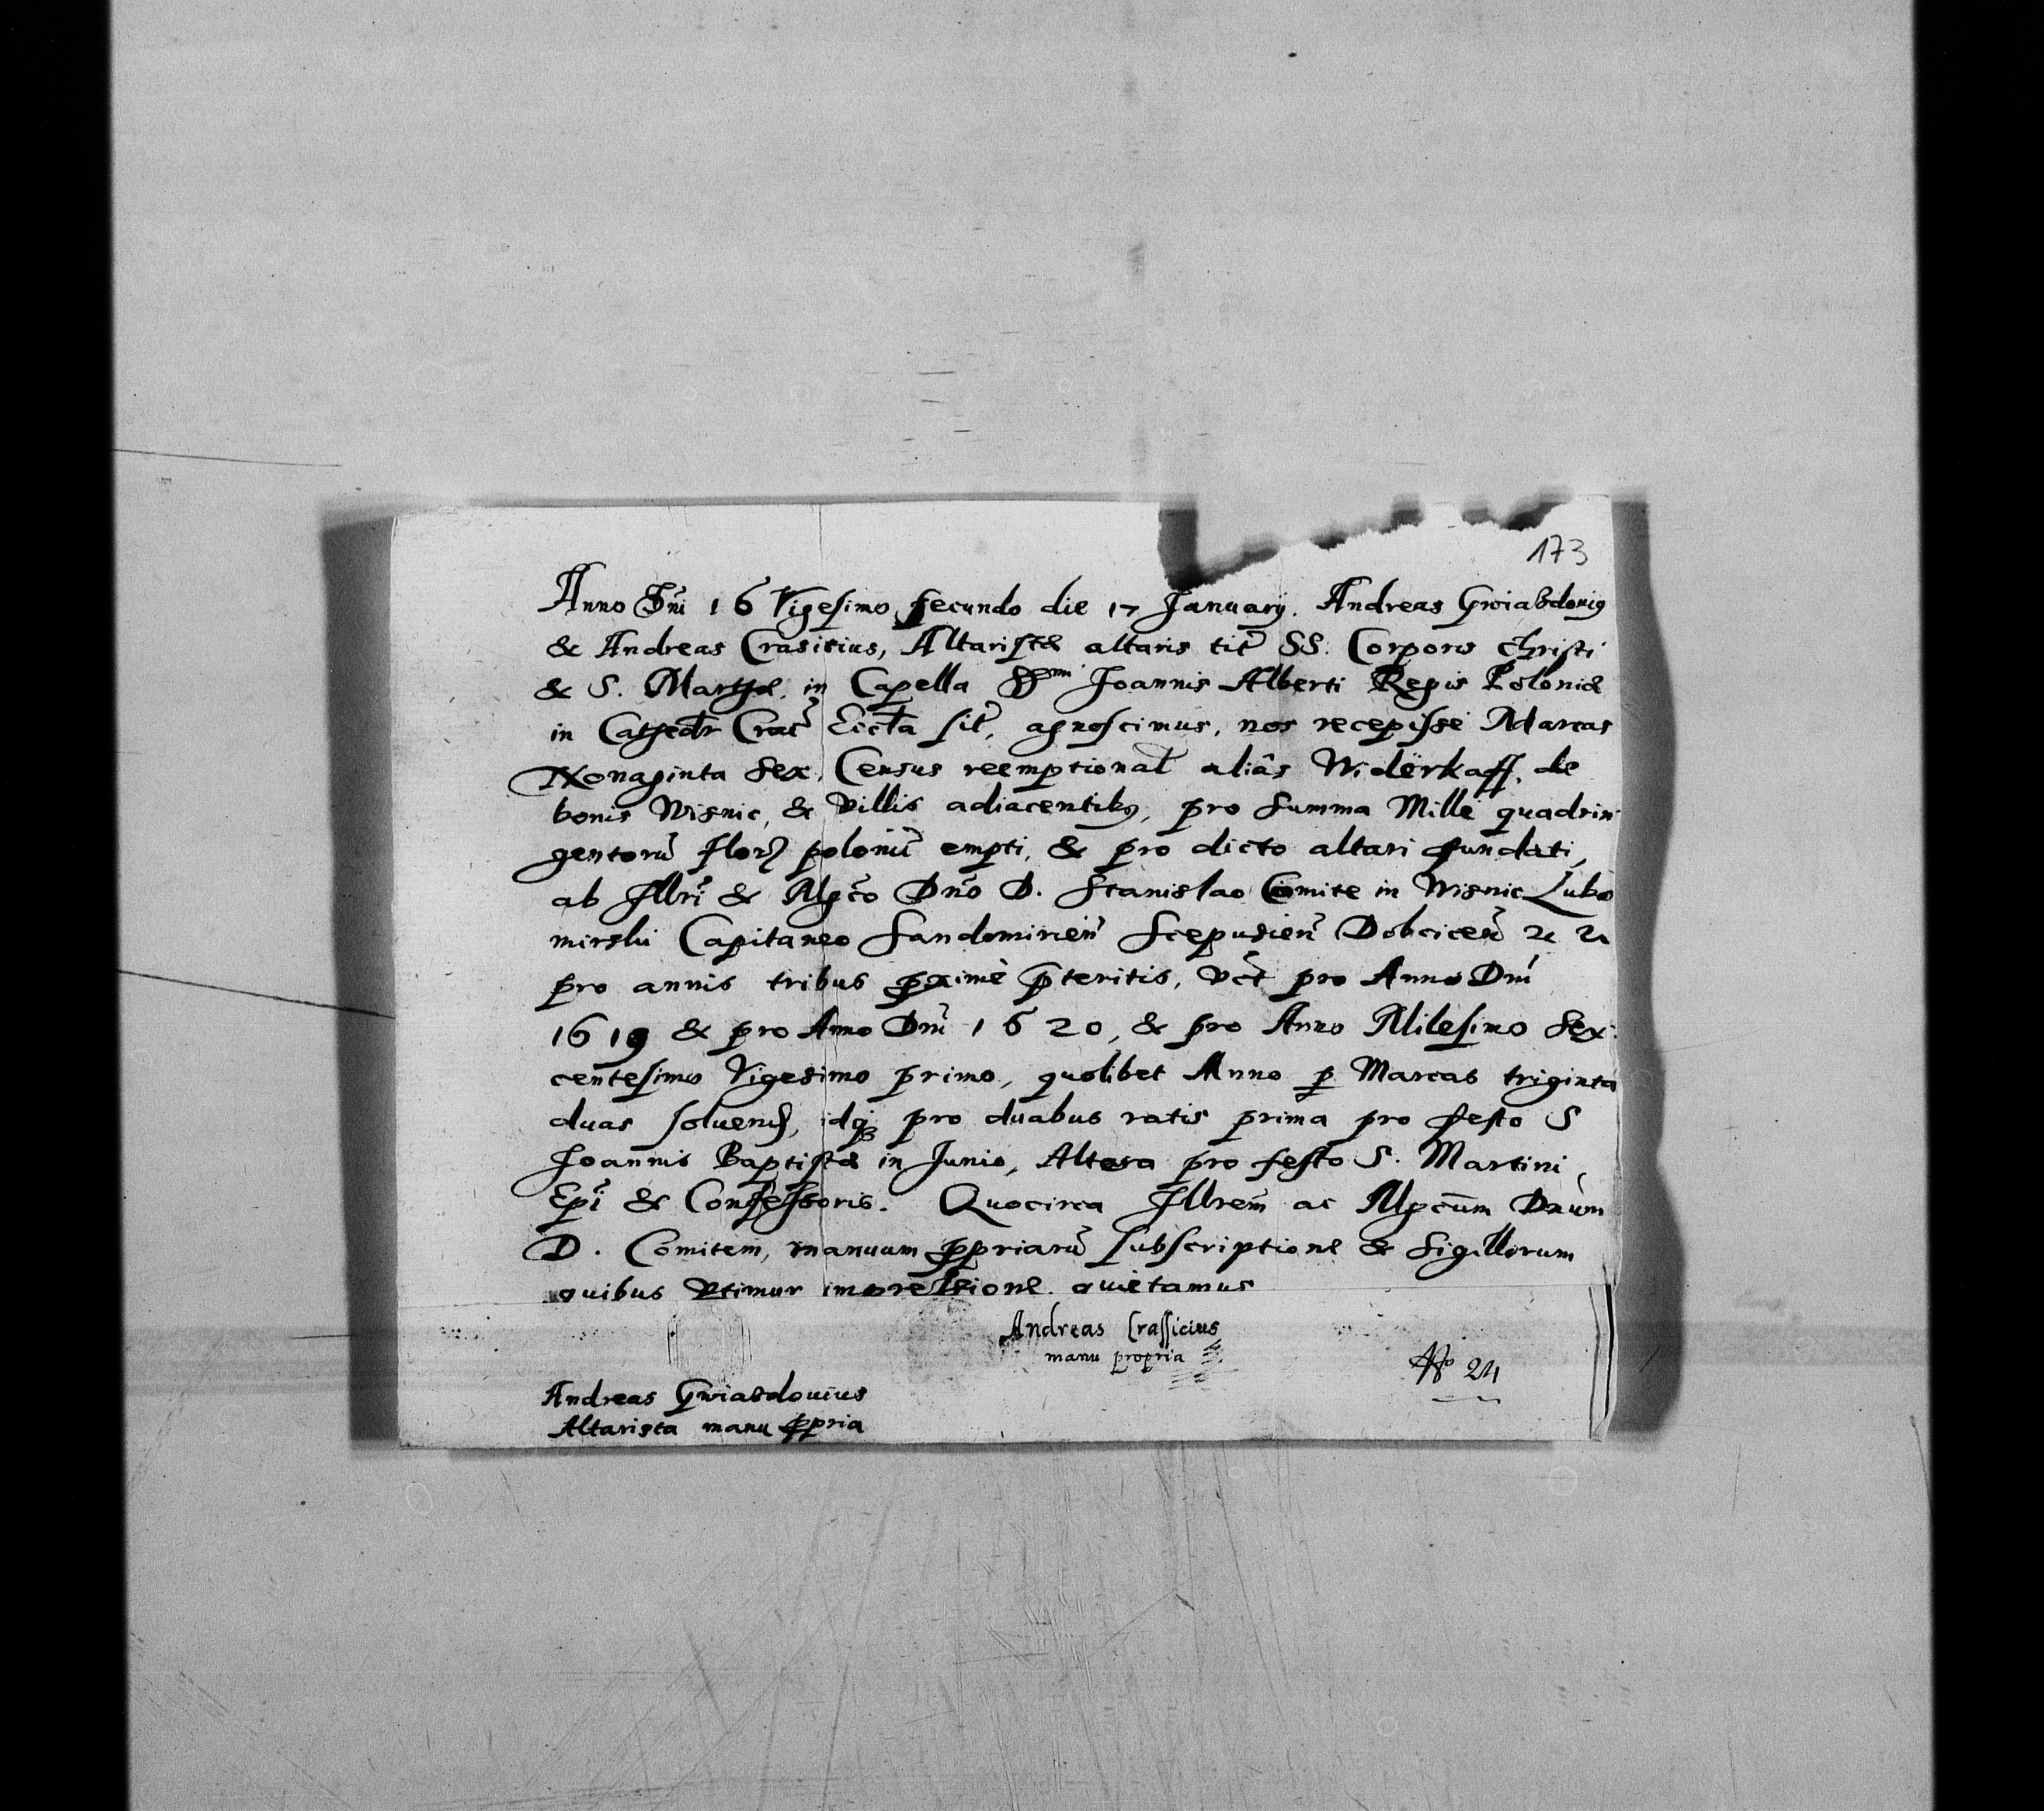 173
Anno Dni 16 Vigesimo secundo die 17 January. Andreas Gwiazdouig
& Andreas Crasicius, Altaristæ altaris tit SS. Corporis Christi
& S. Marthæ, in Capella Joannis Alberti Regis Poloniæ
in Cathedr Crac Eccta sit, agnoscimus, nos recepisse Marcas
Nonaginta sex, Census reemptional aliâs Widerkaff, de
bonis Wisnic, & villis adiacentibq, pro summa Mille quadrin
gentorũ flor polonic empti, & pro dicto altari fundati,
ab Illri & Mgco Dno D. Stanislao Comite in Wisnic Lubo
mirski Capitaneo Sandomirien Scepusien Dobcicen
pro annis tribus pximè pteritis, vct pro Anno Dni
1619 & pro Anno Dni 1620, & pro Anno Milesimo Sex
centesimo Vigesimo primo, quolibet Anno p Marcas triginta
duas soluend, idq pro duabus ratis prima pro festo S
Joannis Baptistæ in Junio, Altera pro festo S. Martini
Epi & Confessoris. Quocirca Illrem ac Mgcum Dnum
D. Comitem, manuum ppriarũ subscriptione & Sigillorum
quibus vtimur impressione quietamus
Andreas Crassicius
manu propria
No 24
Andreas Gwiazdouius
Altarista manu ppria